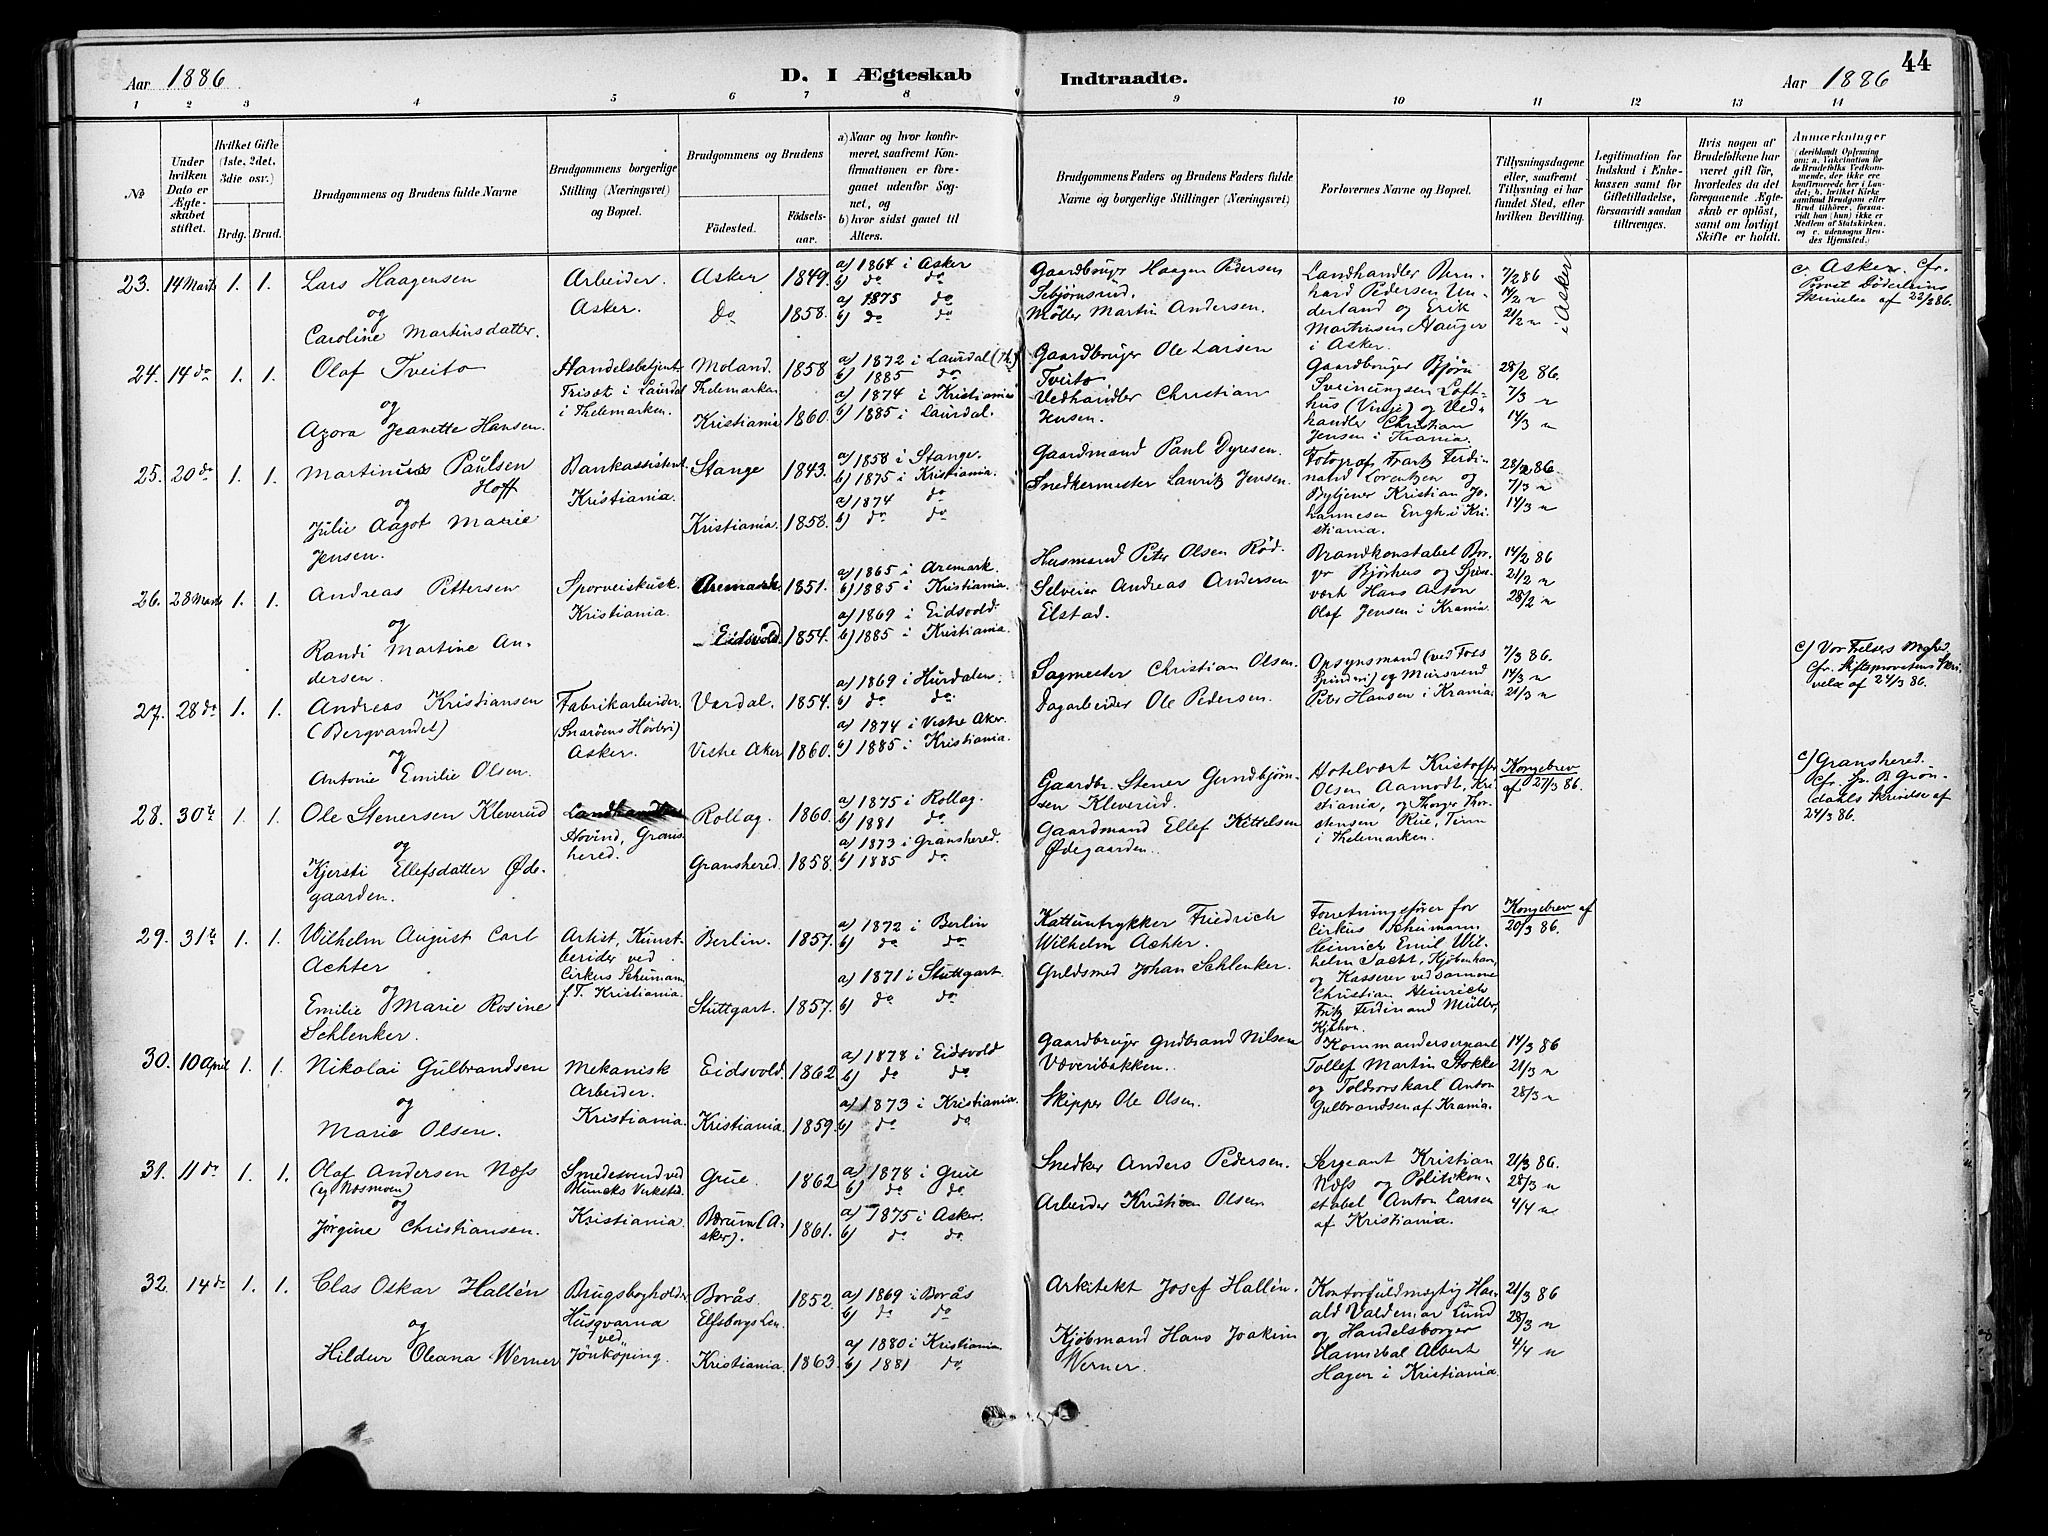 Aar 1886
D. I Ægteskab
Indtraadte.
Aar 1886
44
1 2 3 4 5 6 7 8 9 10 11 12 13 14
№
Under hvilken Dato er Ægteskabet stiftet.
Hvilket Gifte (1ste, 2det, 3die osv.)
Brdg.
Brud.
Brudgommens og Brudens fulde Navne
Brudgommens borgerlige Stilling (Næringsvei) og Bopæl.
Brudgommens og Brudens
Fødested.
Fødselsaar.
a) Naar og hvor konfirmeret, saafremt Konfirmationen er foregaaet udenfor Sognet, og
b) hvor sidst gaaet til Alters.
Brudgommens Faders og Brudens Faders fulde Navne og borgerlige Stillinger (Næringsvei)
Forlovernes Navne og Bopæl.
Tillysningsdagene eller, saafremt Tillysning ei har fundet Sted, efter hvilken Bevilling.
Legitimation for Indskud i Enkekassen samt for Giftetilladelse, forsaavidt saadan tiltrænges.
Hvis nogen af Brudefolkene har været gift før, hvorledes da det foregaaende Ægteskab er opløst, samt om lovligt Skifte er holdt.
Anmærkninger
23. 14 Marts 1. 1.
Lars Haagensen
og
Caroline Martinsdatter.
Arbeider.
Asker.
Asker 1849.
Do 1858.
a) 1864 i Asker
b) do do
a) 1875 do
b) do do
Gaardbruger Haagen Pedersen
Sebjørnsrud.
Møller Martin Andersen.
Landhandler Bern-
hard Pedersen Un-
derland og Erik
Martinsen Hauger
i Asker.
7/2 86
14/2 "
21/2 "
i Asker
c. Asker. cfr.
Provst Döderleins
Skrivelse af 22/2 86.
24. 14 do 1. 1.
Olaf Tveito
og
Azora Jeanette Hansen.
Handelsbetjent
Trisæt i Laurdal
i Thelemarken.
Moland.
Thelemarken 1858
Kristiania 1860.
a) 1872 i Laurdal (Th.)
b) 1885 do
a) 1874 i Kristiania
b) 1885 i Laurdal.
Gaardbruger Ole Larsen
Tveito
Vedhandler Christian
Jensen.
Gaardbruger Bjørn
Sveinungsen Loft-
hus (Vinje) og Ved-
handler Christian
Jensen i Krania.
28/2 86.
7/3 "
14/3 "
25. 20 do 1. 1.
Martinus Paulsen
Hoff
og
Julie Aagot Marie
Jensen.
Bankassistent
Kristiania.
Stange 1843.
Kristiania. 1858.
a) 1858 i Stange.
b) 1875 i Kristiania.
a) 1874 do
b) do do
Gaardmand Paul Dyresen.
Snedkermester Lauritz Jensen.
Fotograf Frantz Ferdi-
nand Lorentzen og
Bytjener Kristian Jo-
hannesen Engh i Kri-
stiania.
28/2 86.
7/3 "
14/3 "
26. 28 Marts 1. 1.
Andreas Pettersen
og
Randi Martine An-
dersen.
Sporveiskusk.
Kristiania.
Aremark. 1851.
Eidsvold. 1854.
a) 1865 i Aremark.
b) 1885 i Kristiania.
a) 1869 i Eidsvold.
b) 1885 i Kristiania.
Husmand Peter Olsen Rød.
Selveier Andreas Andersen
Elstad.
Brandkonstabel Bør-
Bjørhus og
Hans Anton
Olaf Jensen i Krania.
14/2 86
21/2 "
28/2 "
27. 28 do 1. 1.
Andreas Kristiansen
(Bergvandet)
og
Antonie Emilie Olsen.
Fabrikarbeider.
(Snarøens Høvleri)
Asker.
Vardal. 1854.
Vestre Aker 1860.
a) 1869 i Hurdalen.
b) do do
a) 1874 i Vestre Aker.
b) 1885 i Kristiania.
Sagmester Christian Olsen.
Dagarbeider Ole Pedersen.
Opsynsmand (ved Foss
Spinderi) og Mursvend
Peter Hansen i Krania.
7/3 86.
14/3 "
21/3 "
c) Vor Frelsers Mghed.
Cfr. Stiftsprovstens Skri-
velse af 24/3 86.
28. 30te 1. 1.
Ole Stenersen Kleverud
og
Kjersti Ellefsdatter Øde-
gaarden.
Landhandler
Hovind, Grans-
hered.
Rollag. 1860.
Granshered. 1858.
a) 1875 i Rollag.
b) 1881 do
a) 1873 i Granshered.
b) 1885 do
Gaardbr. Stener Gundbjørn-
sen Kleverud.
Gaardmand Ellef Kittelsen
Ødegaarden.
Hotelvært Kristoffer
Olsen Aamodt, Kri-
stiania, og Thorger Thor-
stensen Rue, Tinn
i Thelemarken.
Kongebrev
af 27/3 86.
c) Granshered.
Cfr. Sp. P. Grön-
dahls Skrivelse af
24/3 86.
29. 31te 1. 1.
Wilhelm August Carl
Achter
og
Emilie Marie Rosine
Schlenker.
Artist, Kunst-
berider ved
Cirkus Schumann
f. T. Kristiania.
Berlin. 1857.
Stuttgart. 1857.
a) 1872 i Berlin
b) do do
a) 1871 i Stuttgart.
b) do do
Kattuntrykker Friedrich
Wilhelm Achter.
Guldsmed Johan Schlenker.
Forretningsfører for
Cirkus Schumann
Heinrich Emil Wil-
helm Sacht, Kjøbenhavn,
og Kasserer ved samme
Christian Heinrich
Fritz Ferdinand Müller,
Kjbhvn.
Kongebrev af
20/3 86.
30. 10 April 1. 1.
Nikolai Gulbrandsen
og
Marie Olsen.
Mekanisk
Arbeider.
Kristiania.
Eidsvold. 1862
Kristiania. 1859.
a) 1878 i Eidsvold
b) do do
a) 1873 i Kristiania.
b) do do
Gaardbruger Gudbrand Nilsen
Væveribakken.
Skipper Ole Olsen.
Kommandersergeant
Tollef Martin Stokke
og Toldrorskarl Anton
Gulbrandsen af Krania.
14/3 86
21/3 "
28/3 "
31. 11 do 1. 1.
Olaf Andersen Næss
(eg Næsmoen)
og
Jørgine Christiansen.
Smedesvend ved
Muncks Værksted
Kristiania.
Grue. 1862
Bærum (A-
sker). 1861.
a) 1878 i Grue
b) do do
a) 1875 i Asker.
b) do do
Snedker Anders Pedersen.
Arbeider Kristian Olsen
Sergeant Kristian
Næss og Politikon-
stabel Anton Larsen
af Kristiania.
21/3 86.
28/3 "
4/4 "
32. 14 do 1. 1.
Clas Oskar Hallén
og
Hildur Oleana Werner
Brugsbogholder
Husqvarna
ved
Jönköping.
Borås. 1852.
Elfsborgs Len.
Kristiania 1863.
a) 1869 i Borås
b) do do
a) 1880 i Kristiania.
b) 1881 do
Arkitekt Josef Hallén.
Kjøbmand Hans Joakim
Werner.
Kontorfuldmægtig Har-
ald Valdemar Lund
og Handelsborger
Hannibal Albert
Hagen i Kristiania
21/3 86
28/3 "
4/4 "